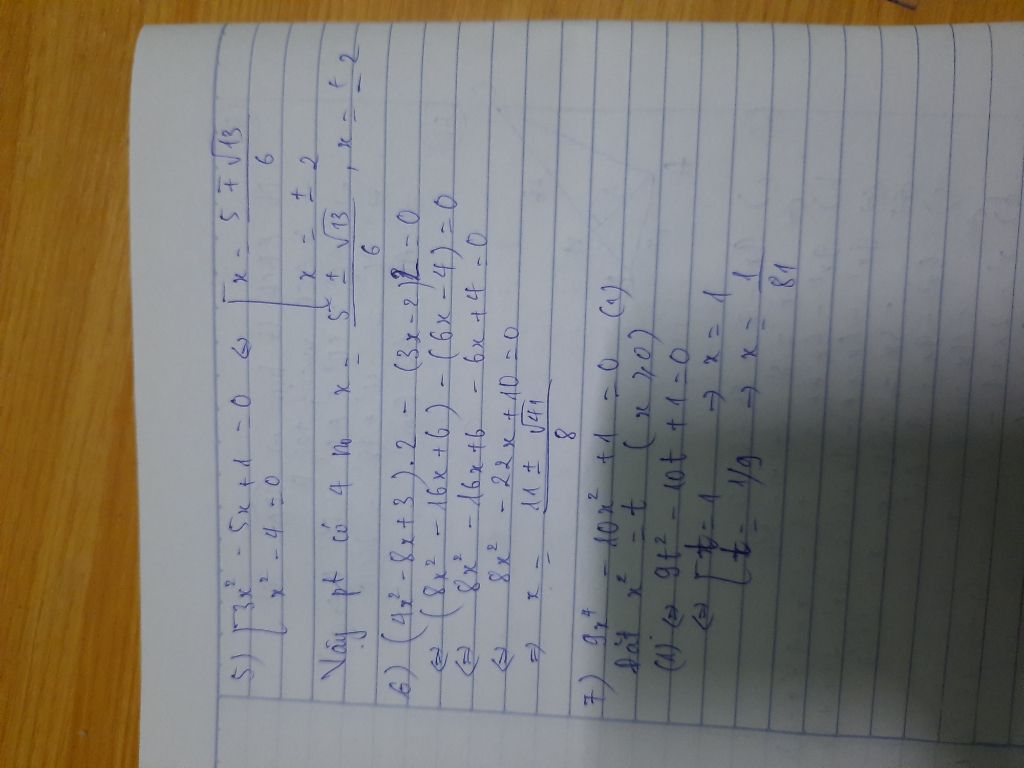 5) [ 3x² - 5x + 1 = 0 ⇔ [ x = 5 ± √13 / 6
x² - 4 = 0 x = ± 2
Vậy pt có 4 n₀ x = 5 ± √13 / 6 , x = ± 2
6) (4x² - 8x + 3).2 - (3x - 2)2 = 0
⇔ (8x² - 16x + 6) - (6x - 4) = 0
⇔ 8x² - 16x + 6 - 6x + 4 = 0
⇔ 8x² - 22x + 10 = 0
⇒ x = 11 ± √41 / 8
7) 9x⁴ - 10x² + 1 = 0 (1)
Đặt x² = t (x ≥ 0)
(1) ⇔ 9t² - 10t + 1 = 0
⇔ [ t = 1 → x = 1
[ t = 1/9 → x = 1 / 81